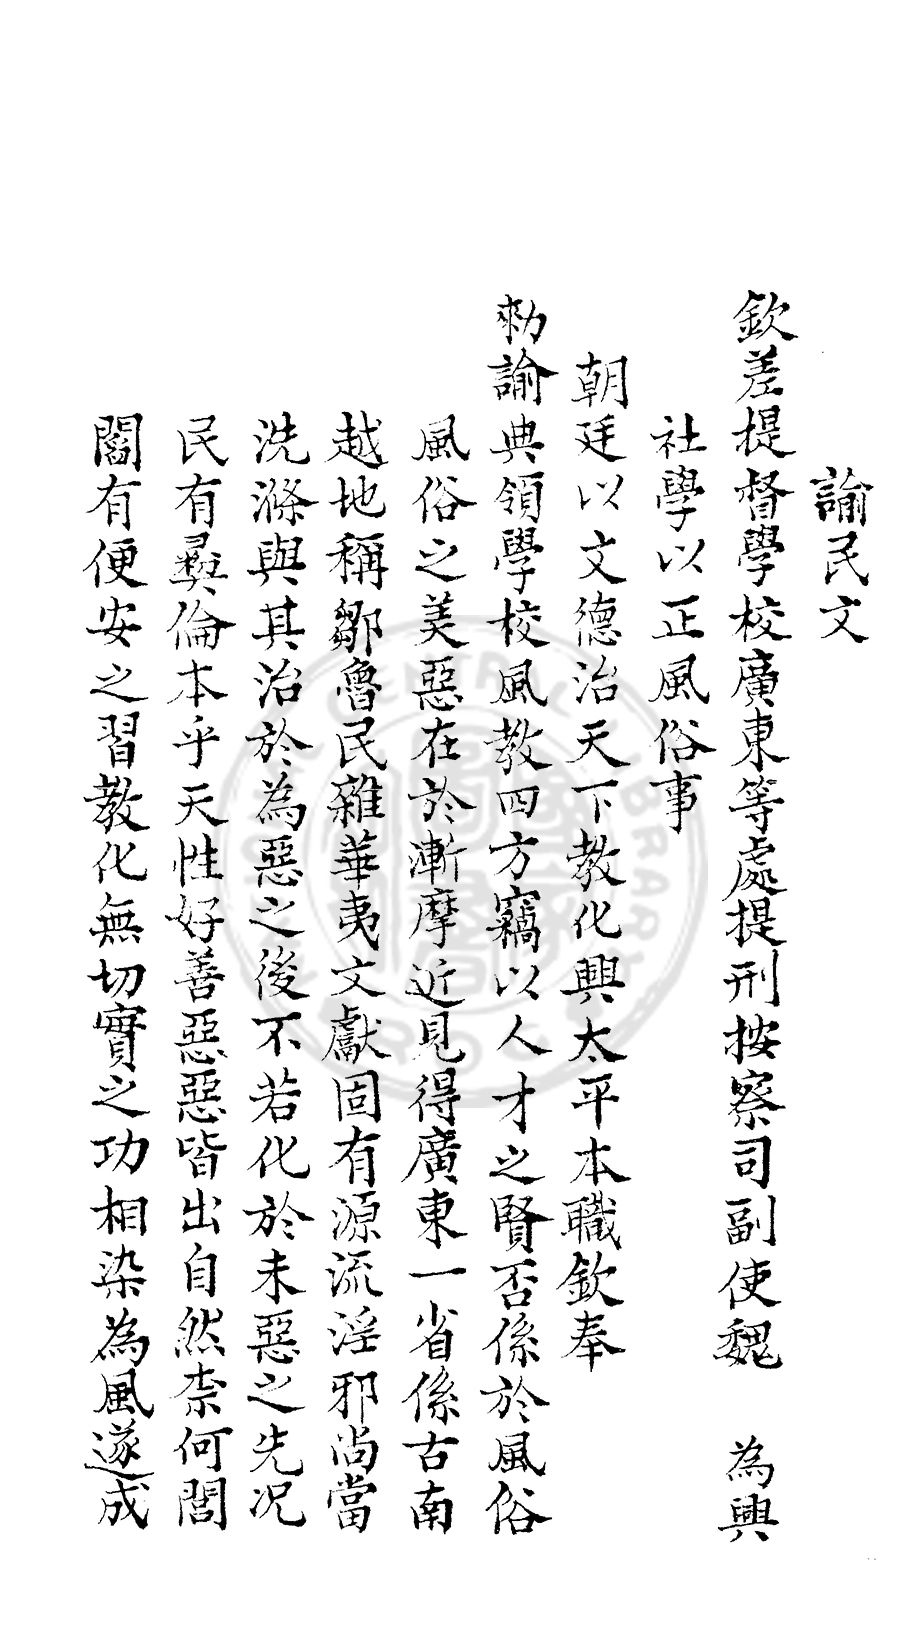 諭民文
欽差提督學校廣東等處提刑按察司副使魏　為興
社學以正風俗事
朝廷以文德治天下教化興太平本職欽奉
勑諭典領學校風教四方竊以人才之賢否係於風俗
風俗之美惡在於漸摩近見得廣東一省係古南
越地稱鄒魯民雜華夷文獻固有源流淫邪尚當
洗滌與其治於為惡之後不若化於未惡之先况
民有彞倫本乎天性好善惡惡皆出自然柰何閭
閻有便安之習教化無切實之功相染為風遂成
CENTRAL LIBRARY